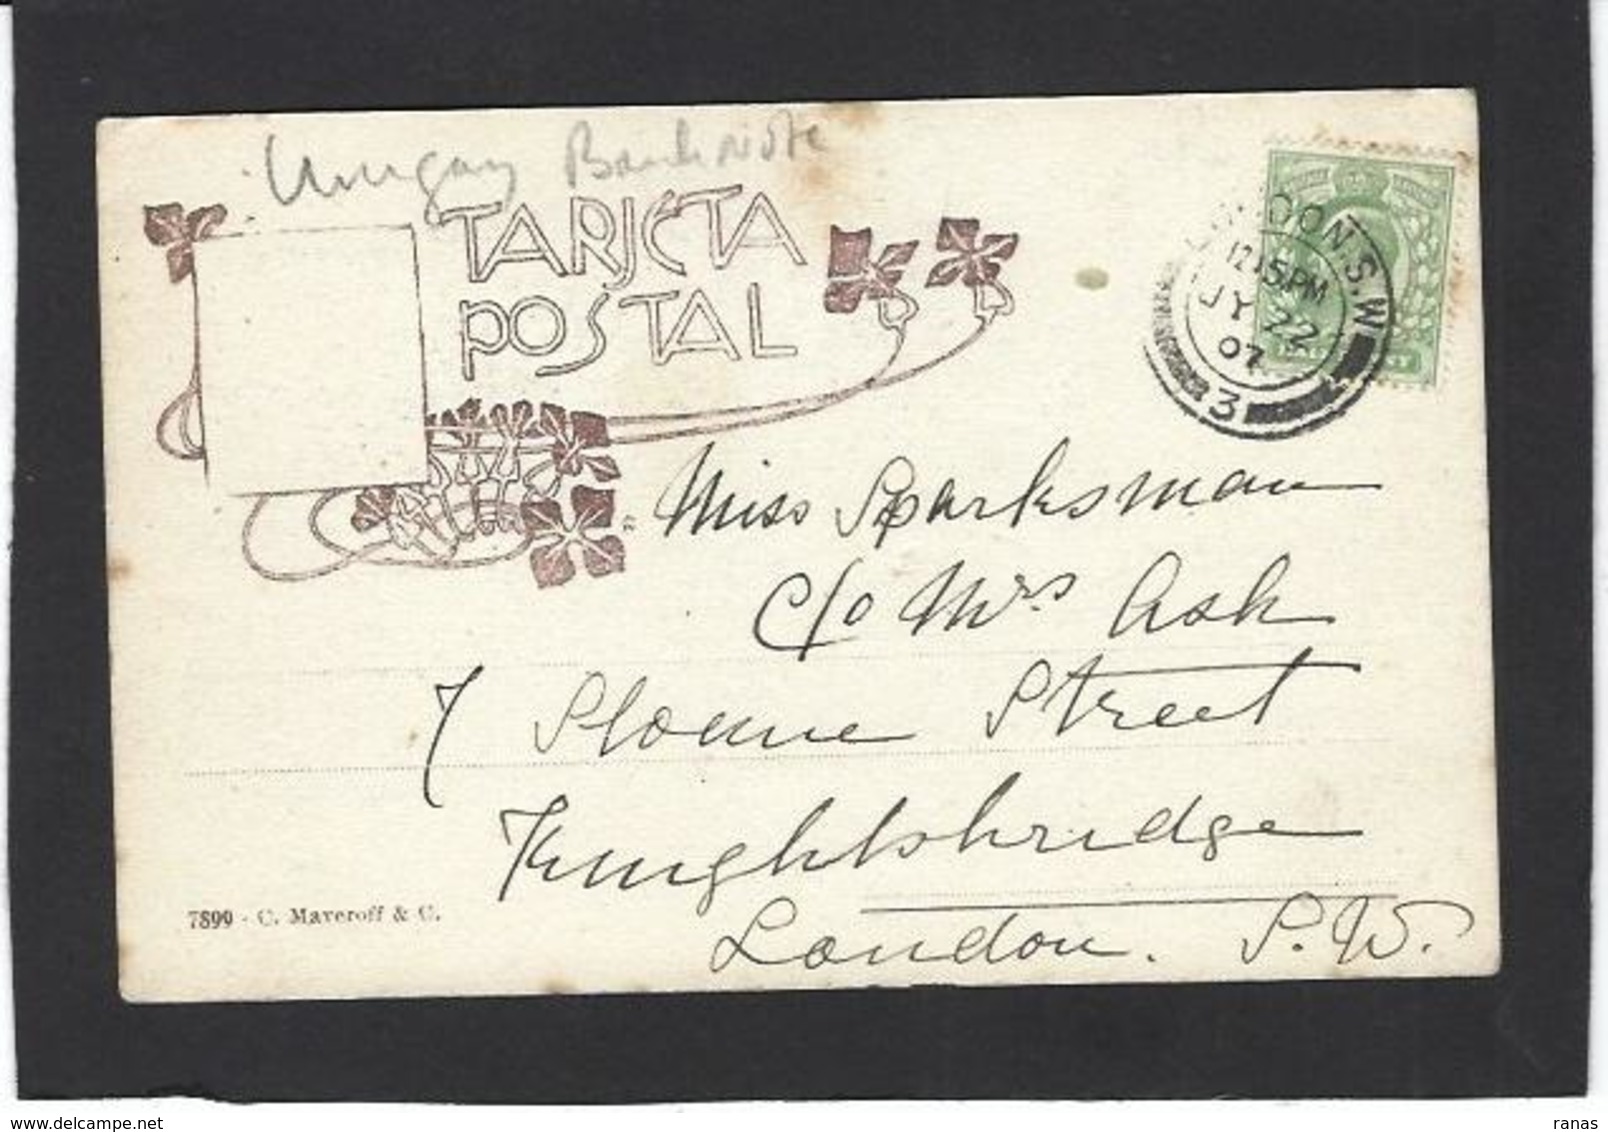 Uruguay Bank Note
TARJETA
POSTAL
LONDON. S.W
12.15PM
JY 22
07
3
Miss Sparksman
c/o Mrs Ash
7 Sloane Street
Knightsbridge
London. S.W.
7899 - C. Maveroff & C.
delcampe.net
ranas